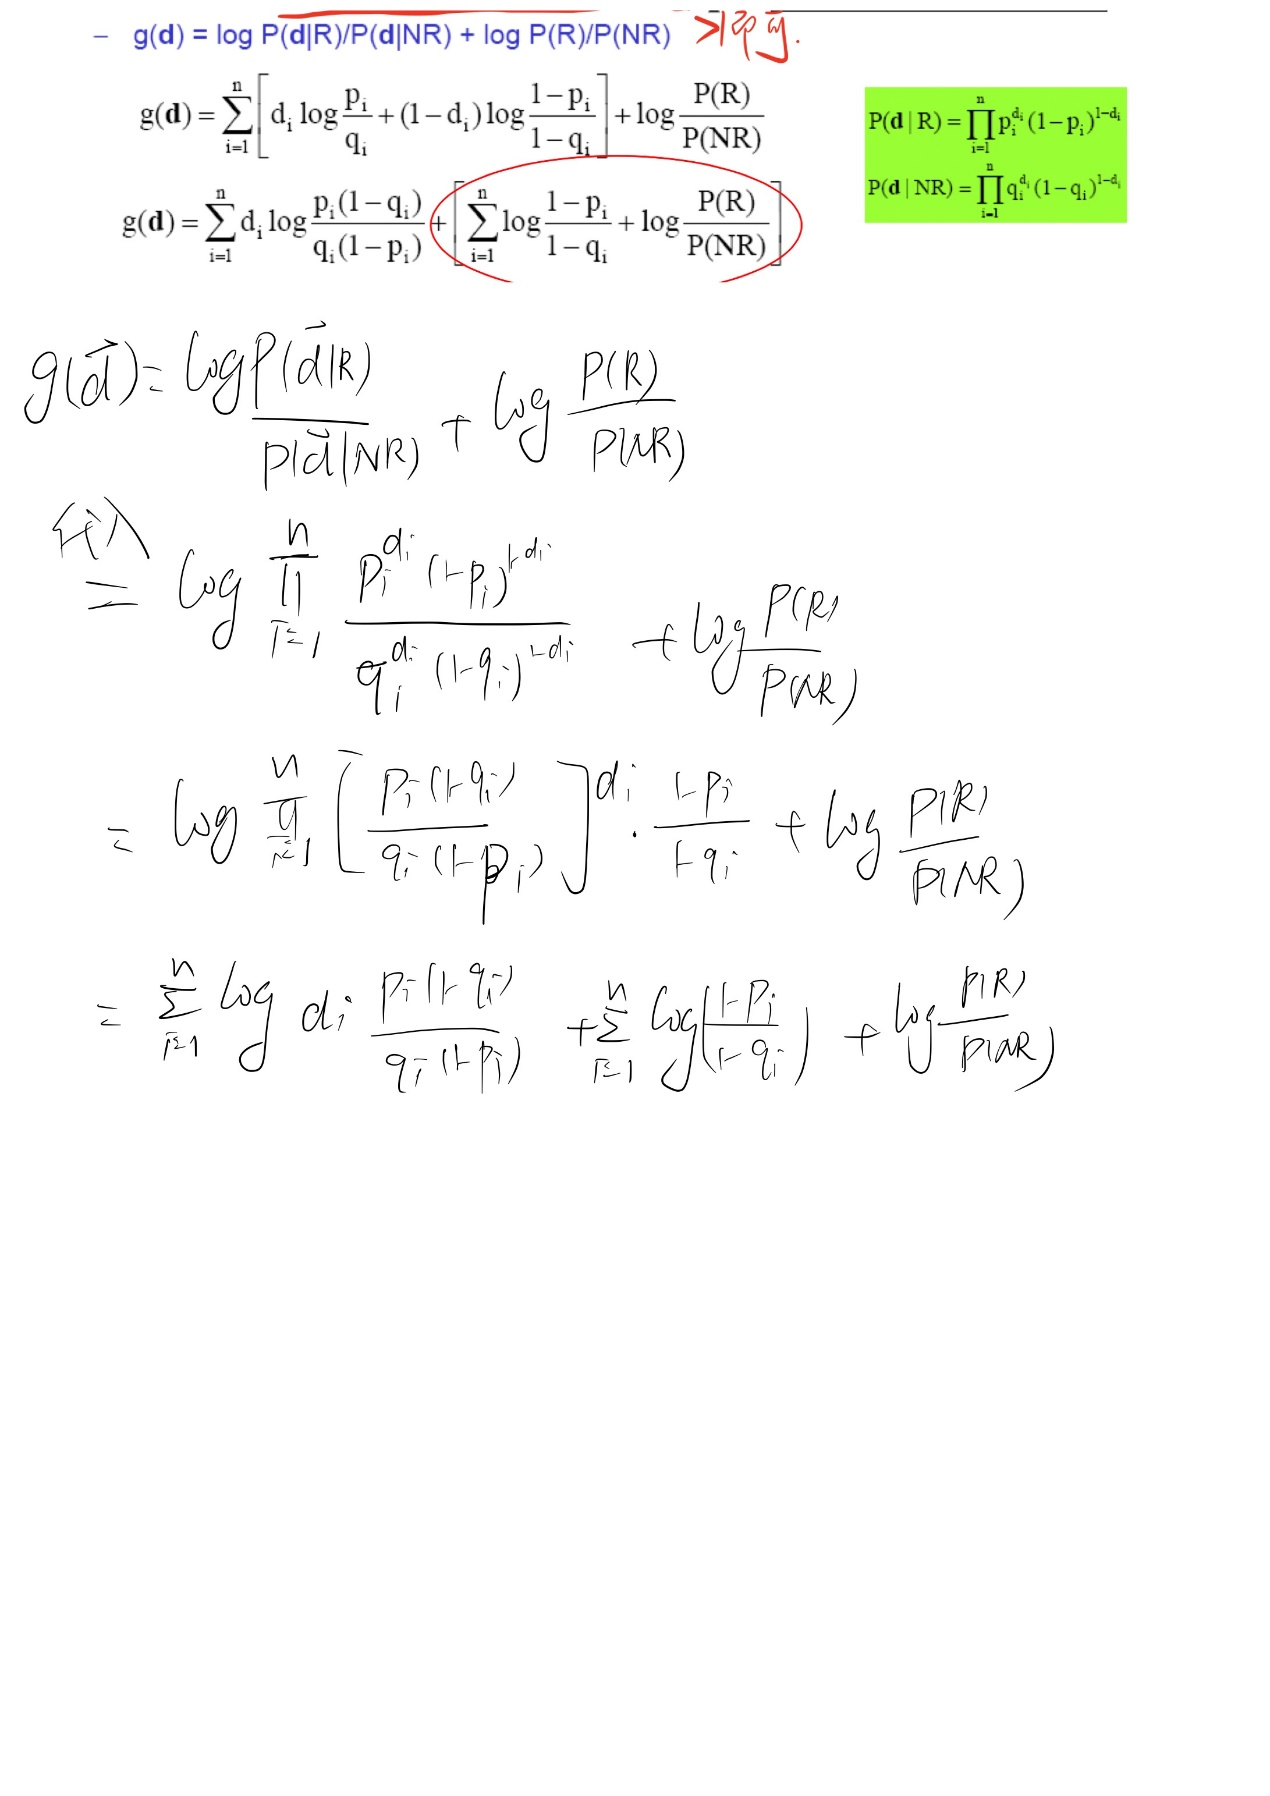 – g(d) = log P(d|R)/P(d|NR) + log P(R)/P(NR) >1即可.
g(d) = ∑_{i=1}^{n} [ d_i log p_i/q_i + (1−d_i) log (1−p_i)/(1−q_i) ] + log P(R)/P(NR)
g(d) = ∑_{i=1}^{n} d_i log p_i(1−q_i)/q_i(1−p_i) + [ ∑_{i=1}^{n} log (1−p_i)/(1−q_i) + log P(R)/P(NR) ]
P(d | R) = ∏_{i=1}^{n} p_i^{d_i} (1−p_i)^{1−d_i}
P(d | NR) = ∏_{i=1}^{n} q_i^{d_i} (1−q_i)^{1−d_i}
g(d⃗) = log P(d⃗|R)/P(d⃗|NR) + log P(R)/P(NR)
代入
= log ∏_{i=1}^{n} p_i^{d_i} (1-p_i)^{1-d_i} / q_i^{d_i} (1-q_i)^{1-d_i} + log P(R)/P(NR)
= log ∏_{i=1}^{n} [ p_i(1-q_i) / q_i(1-p_i) ]^{d_i} · (1-p_i)/(1-q_i) + log P(R)/P(NR)
= ∑_{i=1}^{n} log d_i p_i(1-q_i)/q_i(1-p_i) + ∑_{i=1}^{n} log((1-p_i)/(1-q_i)) + log P(R)/P(NR)